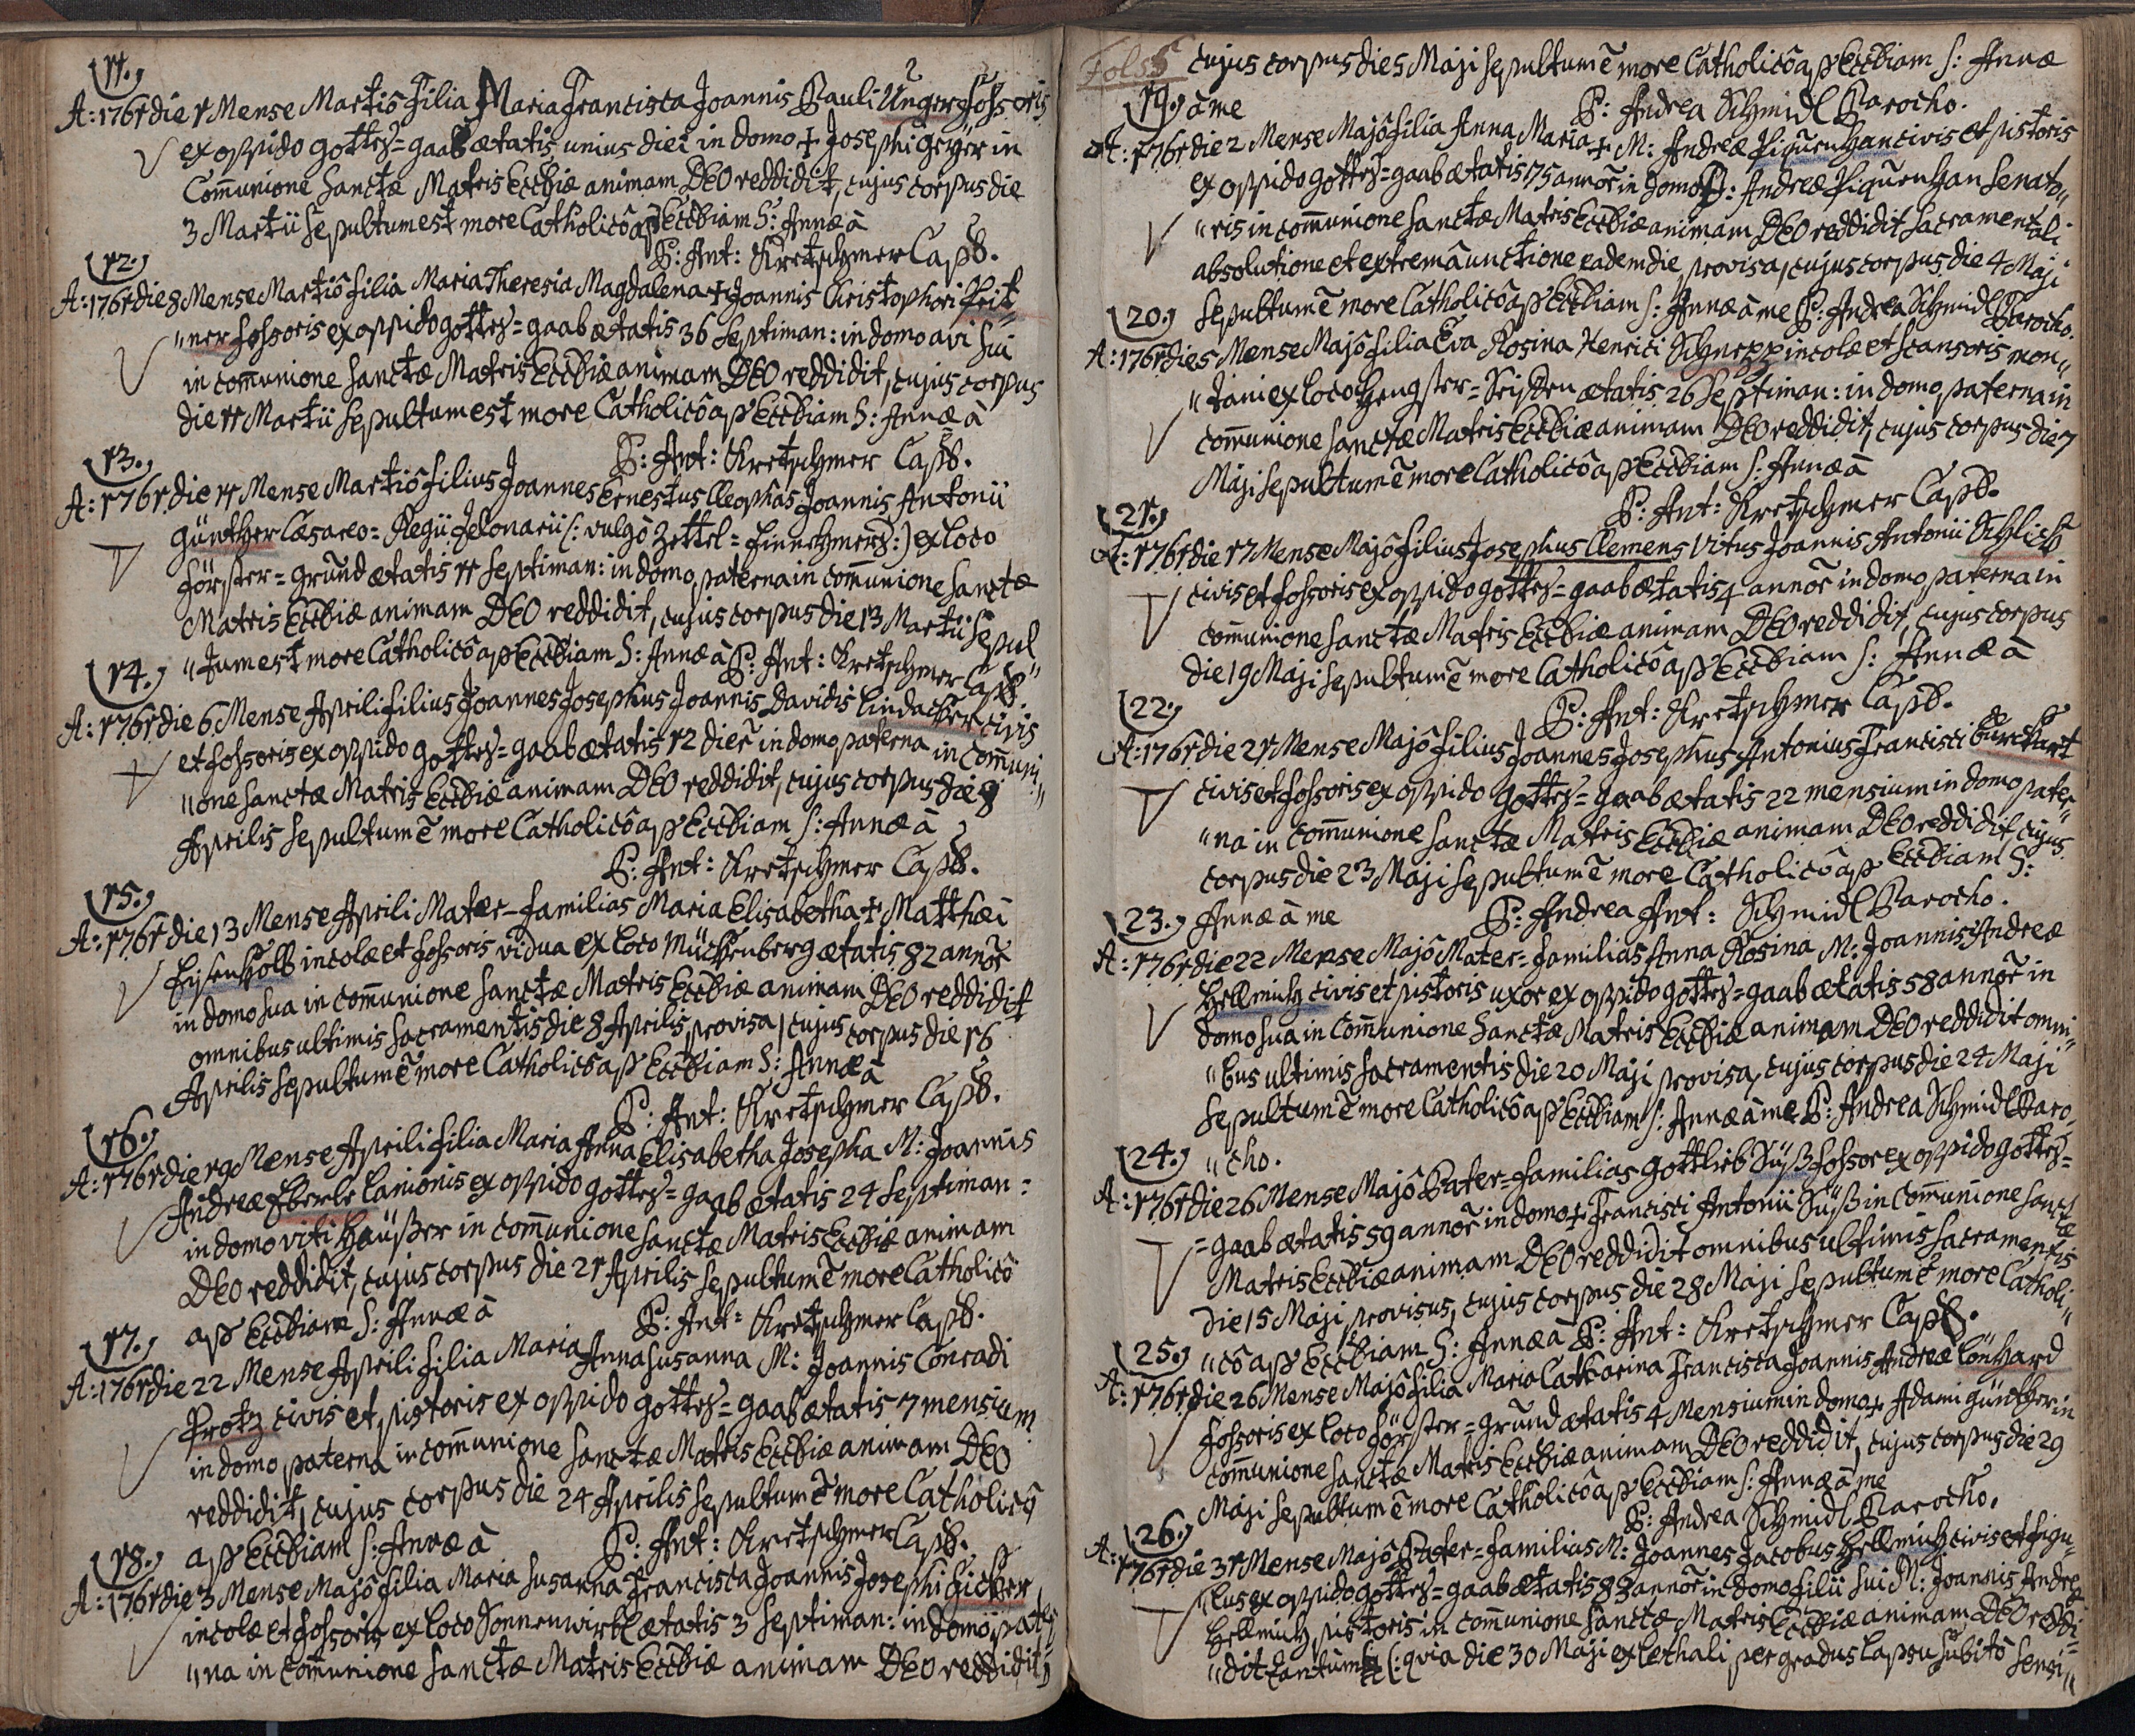 11.)
A: 1761 die 1 Mense Martiô Filia Maria Francisca Joannis Pauli Unger Fossoris
ex oppido Gottes=gaab ætatis unius diei in domo + Josephi Geÿer in
Com̄unione Sanctæ Matris Eccliæ animam DEO reddidit, cujus corpus die
3 Martii Sepultum est more Catholicô ap Eccliam S: Annæ â
P: Ant: Kretschmer Capl.
12.)
A: 1761 die 8 Mense Martiô Filia Maria Theresia Magdalena + Joannis Christophori Frit„
„ner fossoris ex oppido Gottes=gaab ætatis 36 Septiman: in domo avi sui
in com̄unione Sanctæ Matris Eccliæ animam DEO reddidit, cujus corpus
die 11 Martii Sepultum est more Catholicô ap Eccliam S: Annæ â
P: Ant: Kretschmer Capl.
13.)
A: 1761 die 11 Mense Martiô Filius Joannes Ernestus Cleophas Joannis Antonii
Günther Cæsareo=Regii Telonarii (: vulgô Zettel=Einnehmers:) ex loco
Förster=grund ætatis 11 Septiman: in domo paterna in com̄unione Sanctæ
Matris Eccliæ animam DEO reddidit, cujus corpus die 13 Martii Sepul„
„tum est more Catholicô ap Eccliam S: Annæ â P: Ant: Kretschmer Capl.
14.)
A: 1761 die 6 Mense Aprili Filius Joannes Josephus Joannis Davidis Lindacker civis
et fossoris ex oppido Gottes=gaab ætatis 12 dier̄ in domo paterna in Com̄uni„
„one Sanctæ Matris Eccliæ animam DEO reddidit, cujus corpus die 8
Aprilis Sepultum ē more Catholicô ap Eccliam S: Annæ â
P: Ant: Kretschmer Capl.
15.)
A: 1761 die 13 Mense Aprili Mater=familias Maria Elisabetha + Matthæi
Eysenkolb incolæ et fossoris vidua ex loco Mückenberg ætatis 82 annor̄
in domo sua in com̄unione Sanctæ Matris Eccliæ animam DEO reddidit
omnibus ultimis Sacramentis die 8 Aprilis provisa, cujus corpus die 16
Aprilis Sepultum ē more Catholicô ap Eccliam S: Annæ â
P: Ant: Kretschmer Capl.
16.)
A: 1761 die 19 Mense Aprili Filia Maria Anna Elisabetha Josepha M: Joannis
Andreæ Eberle Lanionis ex oppido Gottes=gaab ætatis 24 Septiman:
in domo Viti Häüßer in com̄unione Sanctæ Matris Eccliæ animam
DEO reddidit, cujus corpus die 21 Aprilis Sepultum ē more Catholicô
ap Eccliam S: Annæ â P: Ant: Kretschmer Capl.
17.)
A: 1761 die 22 Mense Aprili Filia Maria Anna Susanna M: Joannis Conradi
Protz civis et pistoris ex oppido Gottes=gaab ætatis 7 mensium
in domo paterna in com̄unione Sanctæ Matris Eccliæ animam DEO
reddidit, cujus corpus die 24 Aprilis Sepultum ē more Catholicô
ap Eccliam S: Annæ â P: Ant: Kretschmer Capl.
18.)
A: 1761 die 3 Mense Majô Filia Maria Susanna Francisca Joannis Josephi Ficker
incolæ et fossoris ex loco Sonnenwirbl ætatis 3 Septiman: in domo pater„
„na in com̄unione Sanctæ Matris Eccliæ animam DEO reddidit,
Fol 5
cujus corpus die 5 Maji Sepultum ē more Catholicô ap Eccliam S: Annæ
â me P: Andrea Schmidl Parocho.
19.)
A: 1761 die 2 Mense Majô Filia Anna Maria + M: Andreæ Piquenhan civis et pistoris
ex oppido Gottes=gaab ætatis 75 annor̄ in domo D: Andreæ Piquenhan Senato„
„ris in com̄unione Sanctæ Matris Eccliæ animam DEO reddidit Sacramentali
absolutione et extremâ unctione eadem die provisa, cujus corpus die 4 Maji
Sepultum ē more Catholicô ap Eccliam S: Annæ â me P: Andrea Schmidl Parocho.
20.)
A: 1761 die 5 Mense Majô Filia Eva Rosina Henrici Schnepp incolæ et scansoris mon„
„tani ex loco Hengster=Seiffen ætatis 26 Septiman: in domo paterna in
com̄unione Sanctæ Matris Eccliæ animam DEO reddidit, cujus corpus die 7
Maji Sepultum ē more Catholicô ap Eccliam S: Annæ â
P: Ant: Kretschmer Capl.
21.)
A: 1761 die 17 Mense Majô Filius Josephus Clemens Vitus Joannis Antonii Schlick
civis et fossoris ex oppido Gottes=gaab ætatis 4 annor̄ in domo paterna in
com̄unione Sanctæ Matris Eccliæ animam DEO reddidit, cujus corpus
die 19 Maji Sepultum ē more Catholicô ap Eccliam S: Annæ â
P: Ant: Kretschmer Capl.
22.)
A: 1761 die 21 Mense Majô Filius Joannes Josephus Antonius Francisci Burckart
civis et fossoris ex oppido Gottes=gaab ætatis 22 mensium in domo pater„
„na in com̄unione Sanctæ Matris Eccliæ animam DEO reddidit, cujus
corpus die 23 Maji Sepultum ē more Catholicô ap Eccliam S:
Annæ â me P: Andrea Ant: Schmidl Parocho.
23.)
A: 1761 die 22 Mense Majô Mater=familias Anna Rosina M: Joannis Andreæ
Hellmich civis et pistoris uxor ex oppido Gottes=gaab ætatis 58 annor̄ in
domo sua in Com̄unione Sanctæ Matris Eccliæ animam DEO reddidit omni„
„bus ultimis Sacramentis die 20 Maji provisa, cujus corpus die 24 Maji
Sepultum ē more Catholicô ap Eccliam S: Annæ â me P: Andrea Schmidl Paro„
„cho.
24.)
A: 1761 die 26 Mense Majô Pater=familias Gottlieb Süß fossor ex oppido Gottes=
=gaab ætatis 59 annor̄ in domo + Francisci Antonii Süß in Com̄unione Sanctæ
Matris Eccliæ animam DEO reddidit omnibus ultimis Sacramentis
die 15 Maji provisus, cujus corpus die 28 Maji Sepultum ē more Catholi„
„cô ap Eccliam S: Annæ â P: Ant: Kretschmer Capl.
25.)
A: 1761 die 26 Mense Majô Filia Maria Catharina Francisca Joannis Andreæ Lönhard
fossoris ex loco Förster=grund ætatis 4 Mensium in domo + Adami Günther in
com̄unione Sanctæ Matris Eccliæ animam DEO reddidit, cujus corpus die 29
Maji Sepultum ē more Catholicô ap Eccliam S: Annæ â me
P: Andrea Schmidl Parocho.
26.)
A: 1761 die 31 Mense Majô Pater=familias M: Joannes Jacobus Hellmich civis et figu„
„lus ex oppido Gottes=gaab ætatis 83 annor̄ in domo filii sui M: Joannis Andreæ
Hellmich pistoris in com̄unione Sanctæ Matris Eccliæ animam DEO reddi„
„dit tantum (: qvia die 30 Maji ex lethali per gradus lapsu subitô sensi„